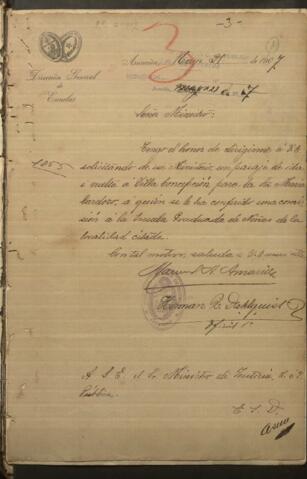 -3-
3
Dirección General
de
Escuelas
Asunción, Mayo 21 de 1907
Señor Ministro:
1055
Tengo el honor de dirigirme á V.E.
solicitando de su Ministerio, un pasaje de ida
i vuelta a Villa Concepción para la Sta María
Cardozo, a quien se le ha conferido una comi-
sión á la Escuela Graduada de Niñas de la
localidad citada.
Con tal motivo, saluda a V.E.
Manuel A. Amarilla
Herman R.
A S. E. el Sr. Ministro de Justicia, C. e I.
Pública.
E. S. D.